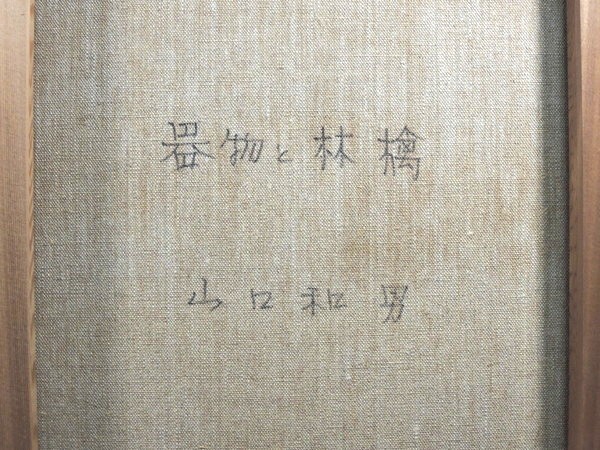 器物と林檎
山口和男